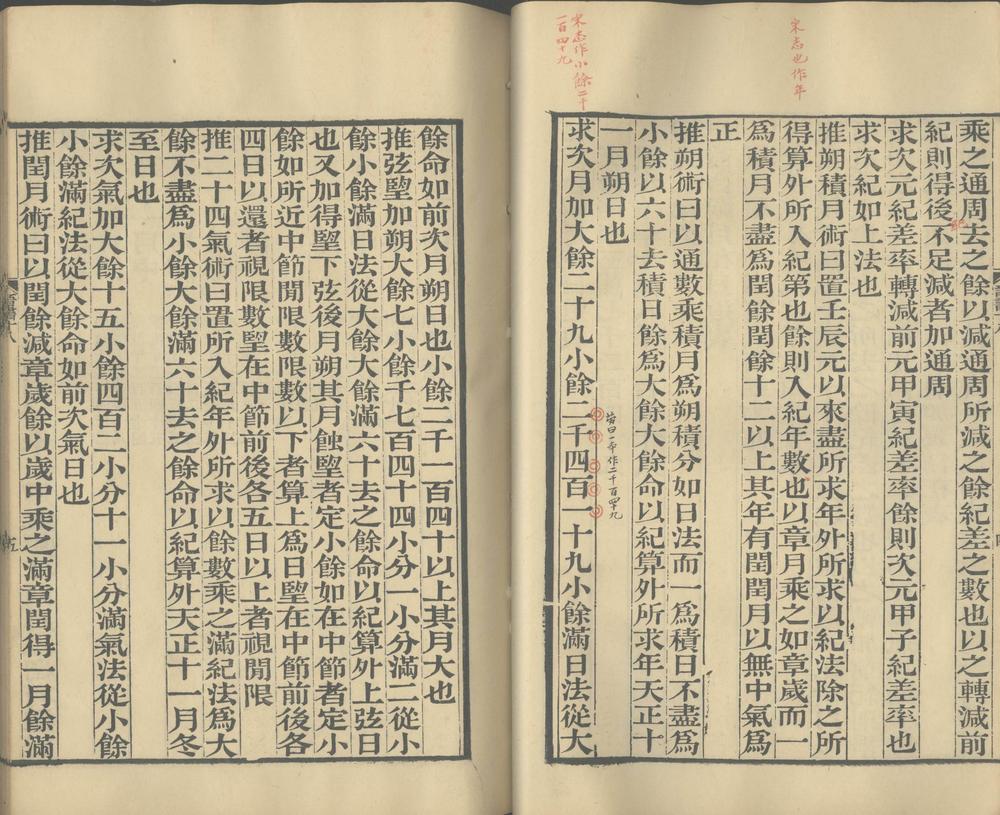 宋志也作年
宋志作小餘二千
一百四十九
乘之通周去之餘以減通周所減之餘紀差之數也以之轉減前
紀則得後不足減者加通周
紀
求次元紀差率轉減前元甲寅紀差率餘則次元甲子紀差率也
求次紀如上法也
推朔積月術曰置壬辰元以來盡所求年外所求以紀法除之所
得算外所入紀第也餘則入紀年數也以章月乘之如章歲而一
為積月不盡為閏餘閏餘十二以上其年有閏閏月以無中氣為
正
推朔術曰以通數乘積月為朔積分如日法而一為積日不盡為
小餘以六十去積日餘為大餘大餘命以紀算外所求年天正十
一月朔日也
求次月加大餘二十九小餘二千四百一十九小餘滿日法從大
曰一本作二千百四十九
餘命如前次月朔日也小餘二千一百四十以上其月大也
推弦朢加朔大餘七小餘千七百四十四小分一小分滿二從小
餘小餘滿日法從大餘大餘滿六十去之餘命以紀算外上弦日
也又加得朢下弦後月朔其月蝕朢者定小餘如在中節者定小
餘如所近中節閒限數限數以下者算上為日朢在中節前後各
四日以還者視限數朢在中節前後各五日以上者視閒限
推二十四氣術曰置所入紀年外所求以餘數乘之滿紀法為大
餘不盡為小餘大餘滿六十去之餘命以紀算外天正十一月冬
至日也
求次氣加大餘十五小餘四百二小分十一小分滿氣法從小餘
小餘滿紀法從大餘命如前次氣日也
推閏月術曰以閏餘減章歲餘以歲中乘之滿章閏得一月餘滿
五